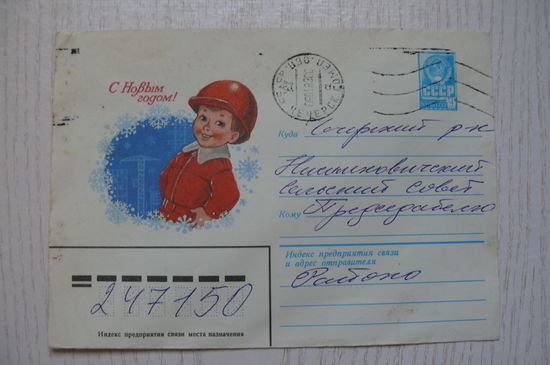 С Новым
годом!
СССР
Куда
р-н
Сельский Совет
Кому Председателю
Индекс предприятия связи
и адрес отправителя
Районо
247150
Индекс предприятия связи места назначения